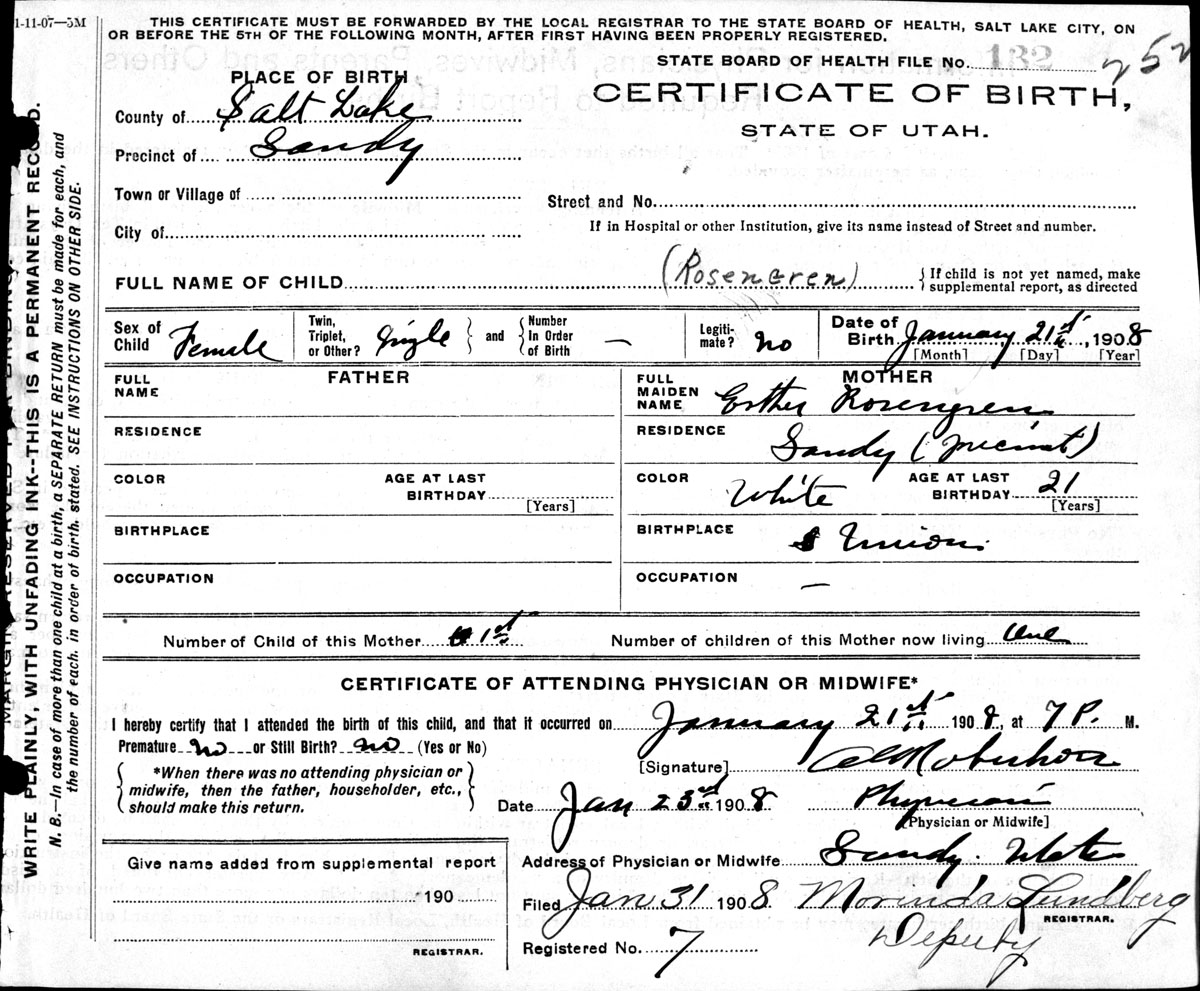 1-11-07—5M
THIS CERTIFICATE MUST BE FORWARDED BY THE LOCAL REGISTRAR TO THE STATE BOARD OF HEALTH, SALT LAKE CITY, ON
OR BEFORE THE 5TH OF THE FOLLOWING MONTH, AFTER FIRST HAVING BEEN PROPERLY REGISTERED.
STATE BOARD OF HEALTH FILE No. 132 252
PLACE OF BIRTH
CERTIFICATE OF BIRTH,
STATE OF UTAH.
County of Salt Lake
Precinct of Sandy
Town or Village of
Street and No.
City of
If in Hospital or other Institution, give its name instead of Street and number.
FULL NAME OF CHILD (Rosengren) { If child is not yet named, make
supplemental report, as directed
Sex of Child Female
Twin, Triplet, or Other? Single } and { Number In Order of Birth —
Legiti-mate? No
Date of Birth January 21st, 1908
[Month] [Day] [Year]
FATHER
FULL NAME
RESIDENCE
COLOR
AGE AT LAST BIRTHDAY
[Years]
BIRTHPLACE
OCCUPATION
MOTHER
FULL MAIDEN NAME Esther Rosengren
RESIDENCE Sandy (precinct)
COLOR White
AGE AT LAST BIRTHDAY 21
[Years]
BIRTHPLACE Union
OCCUPATION —
Number of Child of this Mother 1st
Number of children of this Mother now living One
CERTIFICATE OF ATTENDING PHYSICIAN OR MIDWIFE*
I hereby certify that I attended the birth of this child, and that it occurred on January 21st 1908, at 7 P. M.
Premature no or Still Birth? no (Yes or No)
*When there was no attending physician or
midwife, then the father, householder, etc.,
should make this return.
[Signature] Robertson
Date Jan 23rd 1908 Physician
[Physician or Midwife]
Address of Physician or Midwife Sandy. Utah
Filed Jan 31 1908 Morinda Lundberg
REGISTRAR.
Deputy
Registered No. 7
Give name added from supplemental report
190
REGISTRAR.
MARGIN RESERVED FOR BINDING.
WRITE PLAINLY, WITH UNFADING INK--THIS IS A PERMANENT RECORD.
N. B.—In case of more than one child at a birth, a SEPARATE RETURN must be made for each, and
the number of each, in order of birth, stated. SEE INSTRUCTIONS ON OTHER SIDE.